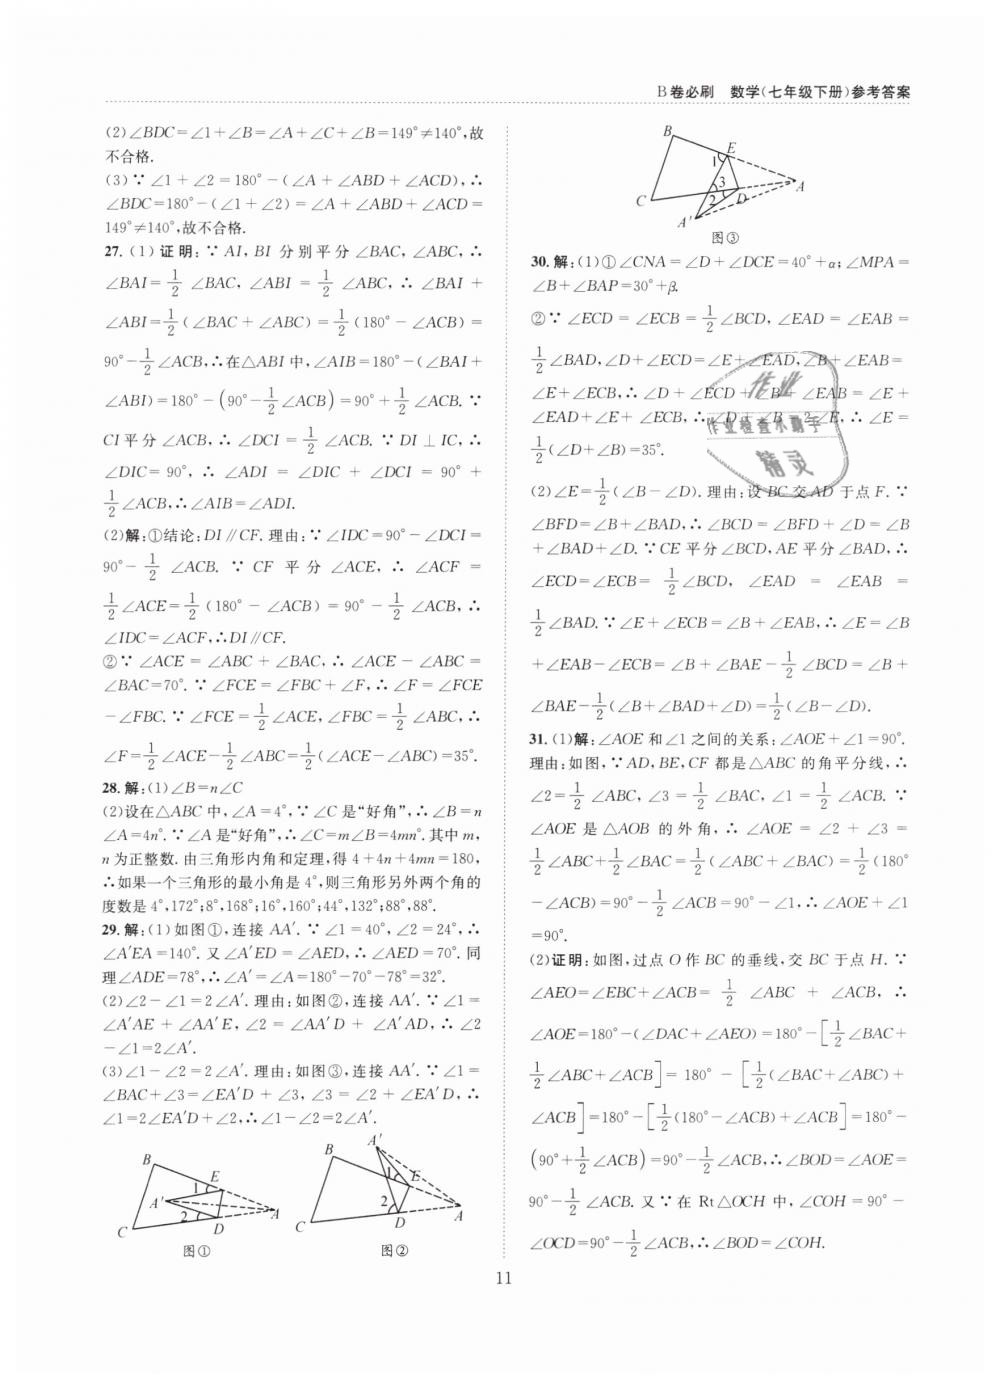 B卷必刷 数学(七年级下册)参考答案
(2)∠BDC=∠1+∠B=∠A+∠C+∠B=149°≠140°,故
不合格.
(3)∵∠1+∠2=180°-(∠A+∠ABD+∠ACD),∴
∠BDC=180°-(∠1+∠2)=∠A+∠ABD+∠ACD=
149°≠140°,故不合格.
27.(1)证明:∵AI,BI 分别平分∠BAC,∠ABC,∴
∠BAI=1/2∠BAC,∠ABI=1/2∠ABC,∴∠BAI+
∠ABI=1/2(∠BAC+∠ABC)=1/2(180°-∠ACB)=
90°-1/2∠ACB,∴在△ABI中,∠AIB=180°-(∠BAI+
∠ABI)=180°-(90°-1/2∠ACB)=90°+1/2∠ACB.∵
CI平分∠ACB,∴∠DCI=1/2∠ACB.∵DI⊥IC,∴
∠DIC=90°,∴∠ADI=∠DIC+∠DCI=90°+
1/2∠ACB,∴∠AIB=∠ADI.
(2)解:①结论:DI∥CF.理由:∵∠IDC=90°-∠DCI=
90°-1/2∠ACB.∵CF 平分∠ACE,∴∠ACF=
1/2∠ACE=1/2(180°-∠ACB)=90°-1/2∠ACB,∴
∠IDC=∠ACF,∴DI∥CF.
②∵∠ACE=∠ABC+∠BAC,∴∠ACE-∠ABC=
∠BAC=70°.∵∠FCE=∠FBC+∠F,∴∠F=∠FCE
-∠FBC.∵∠FCE=1/2∠ACE,∠FBC=1/2∠ABC,∴
∠F=1/2∠ACE-1/2∠ABC=1/2(∠ACE-∠ABC)=35°.
28.解:(1)∠B=n∠C
(2)设在△ABC中,∠A=4°,∵∠C是“好角”,∴∠B=n
∠A=4n°.∵∠A是“好角”,∴∠C=m∠B=4mn°.其中m,
n为正整数.由三角形内角和定理,得4+4n+4mn=180,
∴如果一个三角形的最小角是4°,则三角形另外两个角的
度数是4°,172°;8°,168°;16°,160°;44°,132°;88°,88°.
29.解:(1)如图①,连接AA′.∵∠1=40°,∠2=24°,∴
∠A′EA=140°.又∠A′ED=∠AED,∴∠AED=70°.同
理∠ADE=78°,∴∠A′=∠A=180°-70°-78°=32°.
(2)∠2-∠1=2∠A′.理由:如图②,连接AA′.∵∠1=
∠A′AE+∠AA′E,∠2=∠AA′D+∠A′AD,∴∠2
-∠1=2∠A′.
(3)∠1-∠2=2∠A′.理由:如图③,连接AA′.∵∠1=
∠BAC+∠3=∠EA′D+∠3,∠3=∠2+∠EA′D,∴
∠1=2∠EA′D+∠2,∴∠1-∠2=2∠A′.
B E 1 A′ 2 A C D
图①
A′ B 1 E 2 A C D
图②
B E 1 3 A C 2 D A′
图③
30.解:(1)①∠CNA=∠D+∠DCE=40°+α;∠MPA=
∠B+∠BAP=30°+β.
②∵∠ECD=∠ECB=1/2∠BCD,∠EAD=∠EAB=
1/2∠BAD,∠D+∠ECD=∠E+∠EAD,∠B+∠EAB=
∠E+∠ECB,∴∠D+∠ECD+∠B+∠EAB=∠E+
∠EAD+∠E+∠ECB,∴∠D+∠B=2∠E,∴∠E=
1/2(∠D+∠B)=35°.
(2)∠E=1/2(∠B-∠D).理由:设BC交AD于点F.∵
∠BFD=∠B+∠BAD,∴∠BCD=∠BFD+∠D=∠B
+∠BAD+∠D.∵CE平分∠BCD,AE平分∠BAD,∴
∠ECD=∠ECB=1/2∠BCD,∠EAD=∠EAB=
1/2∠BAD.∵∠E+∠ECB=∠B+∠EAB,∴∠E=∠B
+∠EAB-∠ECB=∠B+∠BAE-1/2∠BCD=∠B+
∠BAE-1/2(∠B+∠BAD+∠D)=1/2(∠B-∠D).
31.(1)解:∠AOE和∠1之间的关系:∠AOE+∠1=90°.
理由:如图,∵AD,BE,CF都是△ABC的角平分线,∴
∠2=1/2∠ABC,∠3=1/2∠BAC,∠1=1/2∠ACB.∵
∠AOE是△AOB的外角,∴∠AOE=∠2+∠3=
1/2∠ABC+1/2∠BAC=1/2(∠ABC+∠BAC)=1/2(180°
-∠ACB)=90°-1/2∠ACB=90°-∠1,∴∠AOE+∠1
=90°.
(2)证明:如图,过点O作BC的垂线,交BC于点H.∵
∠AEO=∠EBC+∠ACB=1/2∠ABC+∠ACB,∴
∠AOE=180°-(∠DAC+∠AEO)=180°-[1/2∠BAC+
1/2∠ABC+∠ACB]=180°-[1/2(∠BAC+∠ABC)+
∠ACB]=180°-[1/2(180°-∠ACB)+∠ACB]=180°-
(90°+1/2∠ACB)=90°-1/2∠ACB,∴∠BOD=∠AOE=
90°-1/2∠ACB.又∵在Rt△OCH中,∠COH=90°-
∠OCD=90°-1/2∠ACB,∴∠BOD=∠COH.
作业
作业检查小助手
精灵
11